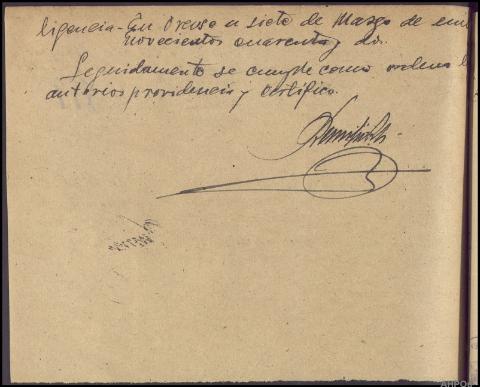 ligencia.- En Orense a siete de Marzo de
novecientos cuarenta y dos.
Seguidamente se cumple como ordena
anterior providencia y certifico.
AHPOu